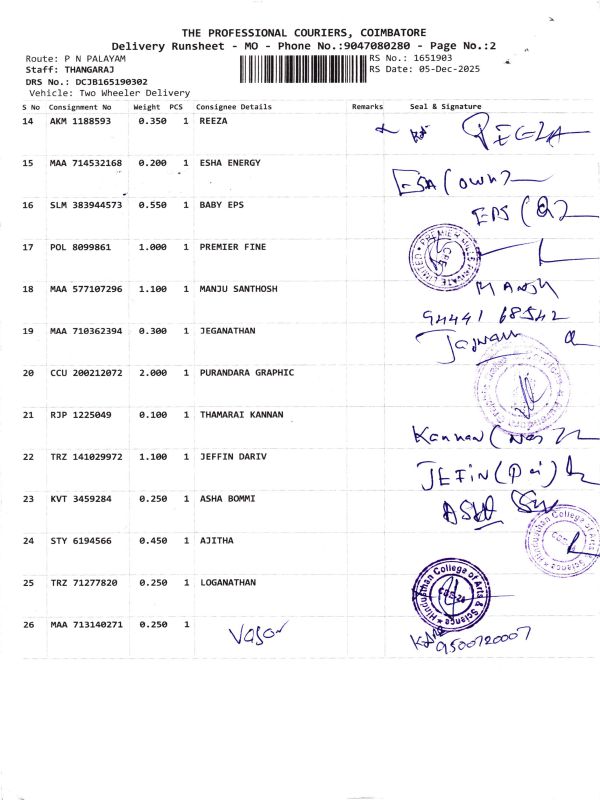 THE PROFESSIONAL COURIERS, COIMBATORE
Delivery Runsheet - MO - Phone No.:9047080280 - Page No.:2
Route: P N PALAYAM
RS No.: 1651903
Staff: THANGARAJ
RS Date: 05-Dec-2025
DRS No.: DCJB165190302
Vehicle: Two Wheeler Delivery
S No Consignment No Weight PCS Consignee Details Remarks Seal & Signature
14 AKM 1188593 0.350 1 REEZA
15 MAA 714532168 0.200 1 ESHA ENERGY
ESA (own)
16 SLM 383944573 0.550 1 BABY EPS
EPS
17 POL 8099861 1.000 1 PREMIER FINE
18 MAA 577107296 1.100 1 MANJU SANTHOSH
94441 68542
19 MAA 710362394 0.300 1 JEGANATHAN
20 CCU 200212072 2.000 1 PURANDARA GRAPHIC
21 RJP 1225049 0.100 1 THAMARAI KANNAN
Kannan
22 TRZ 141029972 1.100 1 JEFFIN DARIV
JEFIN
23 KVT 3459284 0.250 1 ASHA BOMMI
24 STY 6194566 0.450 1 AJITHA
Hindusthan College of Arts & Science
25 TRZ 71277820 0.250 1 LOGANATHAN
Hindusthan College of Arts & Science
26 MAA 713140271 0.250 1
9500720007